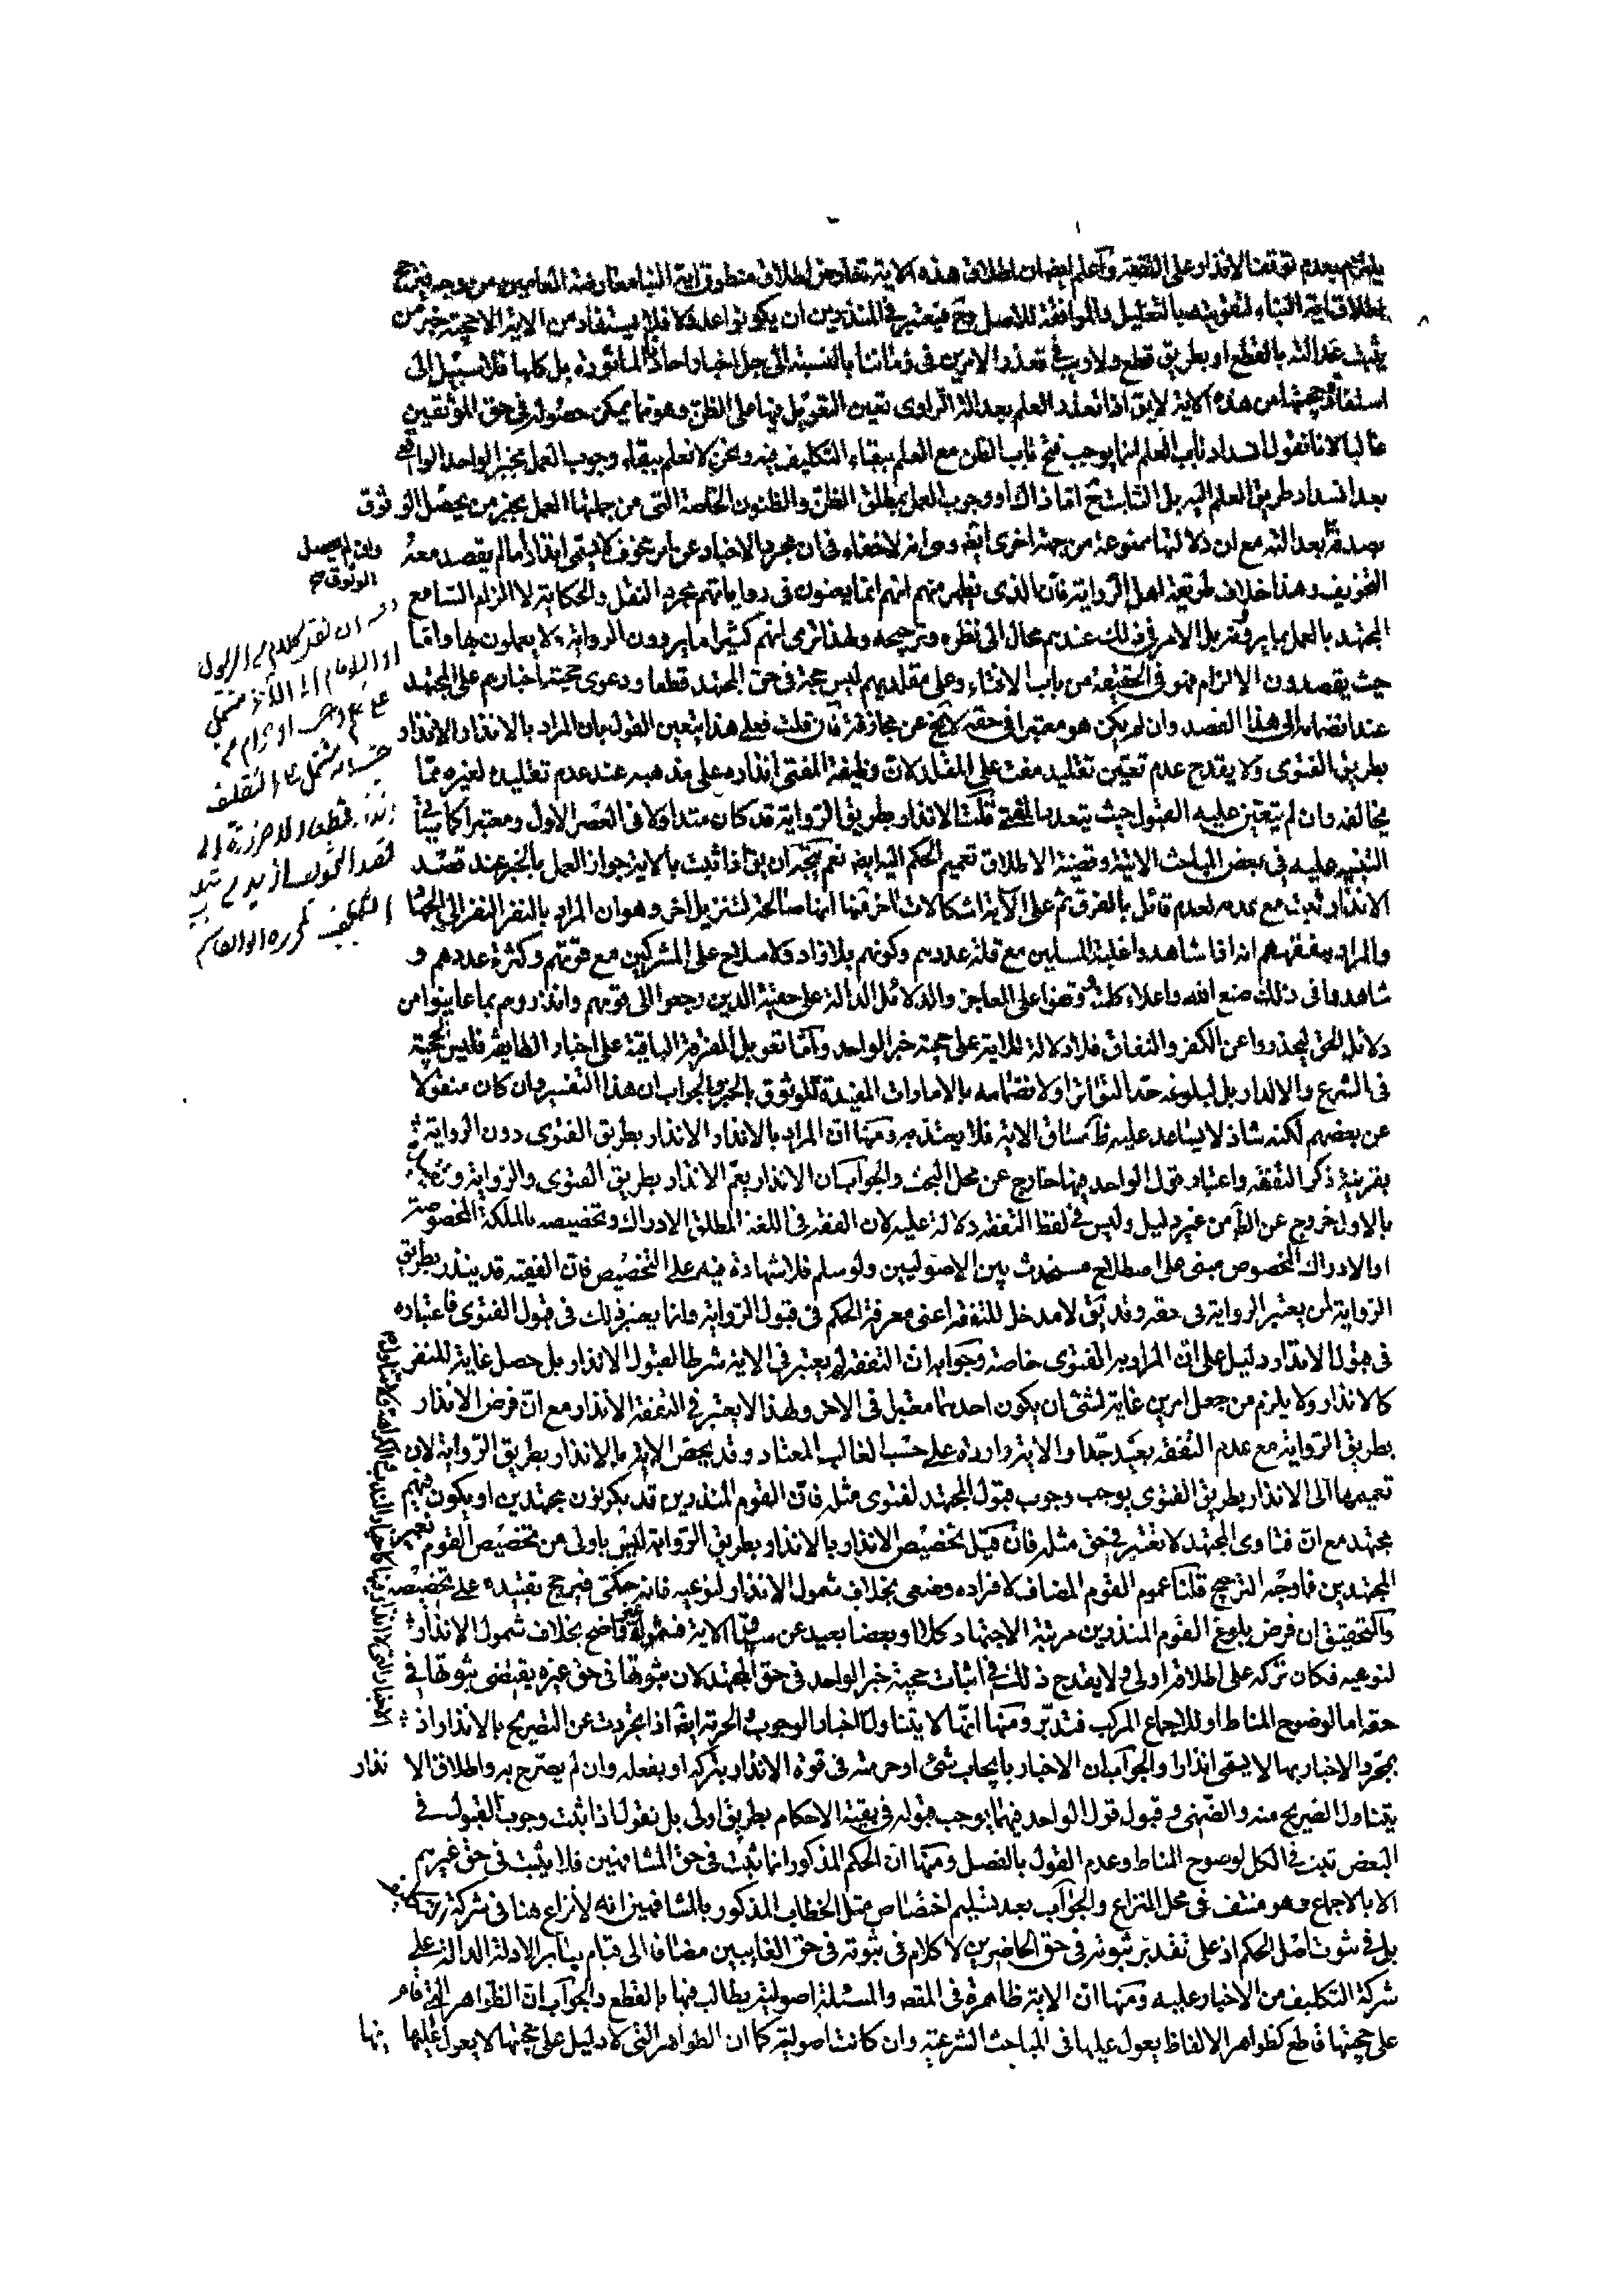 يلتزم بعدم توقف الانذار على التفقه واعلم ايضا ان اطلاق هذه الآية يتعارض اطلاق منطوق آية النبأ معارضة العامين من وجه فيرجح
اطلاق آية النباء لتقويتها بالتعليل والموافقة للاصل وح فيعتبر في المنذرين ان يكونوا عدولا فلا يستفاد من الآية الا حجية خبر من
يثبت عدالته بالقطع او بطريق قطعي ولا ريب في تعذر الامرين في زماننا بالنسبة الى جل اخبار الآحاد الماثورة بل كلها فلا سبيل الى
استفادة حجيتها من هذه الآية لا يق اذا تعذر العلم بعدالة الراوى تعين التعويل فيها على الظن وهو مما يمكن حصوله في حق الموثقين
غالبا لانا نقول انسداد باب العلم انما يوجب فتح باب الظن مع العلم ببقاء التكليف فيه ونحن لا نعلم ببقاء وجوب العمل بخبر الواحد الواقعى
بعد انسداد طريق العلم اليه بل الثابت ح اما ذاك او وجوب العمل بمطلق الظن والظنون الخاصة التى من جملتها العمل بخبر من يحصل الوثوق
بصدقه بعدالته مع ان دلالتها ممنوعة من جهة اخرى ايضا وهو انه لا خفاء في ان مجرد الاخبار عن امر مخوف لا يسمى انذارا ما لم يقصد معه
وان لم يحصل
الوثوق
التخويف وهذا خلاف طريقة اهل الرواية فان الذى يظهر منهم انهم انما يعنون في رواياتهم مجرد النقل والحكاية لا الزام السامع
المجتهد بالعمل بما يروونه بل الامر في ذلك عندهم محال الى نظره وترجيحه ولهذا ترى انهم كثيرا ما يروون الرواية ولا يعملون بها واما
حيث يقصدون الالزام فهو في الحقيقة من باب الافتاء وعلى مقلديهم ليس حجة في حق المجتهد قطعا ودعوى حجية اخبارهم على المجتهد
عند انضمامه الى هذا القصد وان لم يكن هو معتبرا في حقه لا يخ عن مجازفة فان قلت فعلى هذا يتعين القول بان المراد بالانذار الانذار
بطريق الفتوى ولا يقدح عدم تعين تقليد مفت على المقلد لان وظيفة المفتى انذاره على مذهبه عند عدم تقليده لغيره ممن
يخالفه وان لم يتعين عليه القبول حيث يتعدد المفتى قلت الانذار بطريق الرواية قد كان متداولا في العصر الاول ومعتبرا كما ياتى
التنبيه عليه في بعض المباحث الآتية وقضية الاطلاق تعميم الحكم اليه ايضا نعم يتجه ان يق اذا ثبت بالآية جواز العمل بالخبر عند قصد
الانذار ثبت مع عدمه لعدم قائل بالفرق ثم على الآية اشكالات اخر منها انها صالحة لتنزيل آخر وهو ان المراد بالنفر النفر الى الجهاد
والمراد بتفقههم انه اذا شاهدوا غلبة المسلمين مع قلة عددهم وكونهم بلا زاد ولا سلاح على المشركين مع قوتهم وكثرة عددهم و
شاهدوا في ذلك صنع الله واعلاء كلمته وقفوا على المعاجز والدلائل الدالة على حقية الدين رجعوا الى قومهم وانذروهم بما عاينوا من
دلائل الحق ليحذروا عن الكفر والنفاق فلا دلالة للآية على حجية خبر الواحد واما تعويل الفرقة الباقية على اخبار الطايفة فليس لحجيته
في الشرع والا لدار بل لبلوغه حد التواتر او لانضمامه بالامارات المفيدة للوثوق بالخبر والجواب ان هذا التفسير وان كان منقولا
عن بعضهم لكنه شاذ لا يساعد عليه ظ مساق الآية فلا يعتد به ومنها ان المراد بالانذار الانذار بطريق الفتوى دون الرواية
بقرينة ذكر التفقه واعتبار قول الواحد فيها خارج عن محل البحث والجواب ان الانذار يعم الانذار بطريق الفتوى والرواية وتخصيصه
بالاول خروج عن الظ من غير دليل وليس في لفظ التفقه دلالة عليه لان الفقه في اللغة المطلق الادراك وتخصيصه بالملكة المخصوصة
او الادراك المخصوص مبنى على اصطلاح مستحدث بين الاصوليين ولو سلم فلا شهادة فيه على التخصيص فان الفقيه قد ينذر بطريق
الرواية لمن يعتبر الرواية في حقه وقد يق لا مدخل للتفقه اعنى معرفة الحكم في قبول الرواية وانما يعتبر ذلك في قبول الفتوى فاعتباره
في قبول الانذار دليل على ان المراد به الفتوى خاصة وجوابه ان التفقه لم يعتبر في الآية شرطا لقبول الانذار بل حصل غاية للنفر
كالانذار ولا يلزم من جعل امرين غاية لشئ ان يكون احدهما معتبرا في الاخر ولهذا لا يعتبر في التفقه الانذار مع ان فرض الانذار
بطريق الرواية مع عدم التفقه بعيد جدا والآية واردة على حسب الغالب المعتاد وقد يخص الآية بالانذار بطريق الرواية لان
تعميمها الى الانذار بطريق الفتوى يوجب وجوب قبول المجتهد لفتوى مثله فان القوم المنذرين قد يكونون مجتهدين او يكون فيهم
مجتهد مع ان فتاوى المجتهد لا تعتبر في حق مثله فان قيل تخصيص الانذار بالانذار بطريق الرواية ليس باولى من تخصيص القوم بغير
المجتهدين فما وجه الترجيح قلنا عموم القوم المضاف لافراده وضعى بخلاف شمول الانذار لنوعيه فانه حكمى فيرجح تقييده على تخصيصه
والتحقيق ان فرض بلوغ القوم المنذرين مرتبة الاجتهاد كلا او بعضا بعيد عن سياق الآية فشمولها له غير واضح بخلاف شمول الانذار
لنوعيه فكان تركه على اطلاقه اولى ولا يقدح ذلك في اثبات حجية خبر الواحد في حق المجتهد لان ثبوتها في حق غيره يقتضى ثبوتها في
حقه اما لوضوح المناط او للاجماع المركب فتدبر ومنها انها لا يتناول اخبار الوجوب والحرمة ايضا اذا تجردت عن التصريح بالانذار اذ
بمجرد الاخبار بها لا يسمى انذارا والجواب ان الاخبار بايجاب شئ او حرمته في قوة الانذار بتركه او بفعله وان لم يصرح به واطلاق الانذار
يتناول الصريح منه والضمنى وقبول قول الواحد فيهما يوجب قبوله في بقية الاحكام بطريق اولى بل نقول اذا ثبت وجوب القبول في
البعض ثبت في الكل لوضوح المناط وعدم القول بالفصل ومنها ان الحكم المذكور انما ثبت في حق المشافهين فلا يثبت في حق غيرهم
الا بالاجماع وهو منتف في محل النزاع والجواب بعد تسليم اختصاص مثل الخطاب المذكور بالمشافهين انه لا نزاع هنا في شركة
بل في ثبوت اصل الحكم اذ على تقدير ثبوته في حق الحاضرين لا كلام في ثبوته في حق الغايبين مضافا الى قيام ساير الادلة الدالة على
شركة التكليف من الاخبار عليه ومنها ان الآية ظاهرة في المقصد والمسئلة اصولية يطالب فيها بالقطع والجواب ان الظواهر التى قام
على حجيتها قاطع كظواهر الالفاظ يعول عليها في المباحث الشرعية وان كانت اصولية كما ان الظواهر التى لا دليل على حجيتها لا يعول عليها فيها